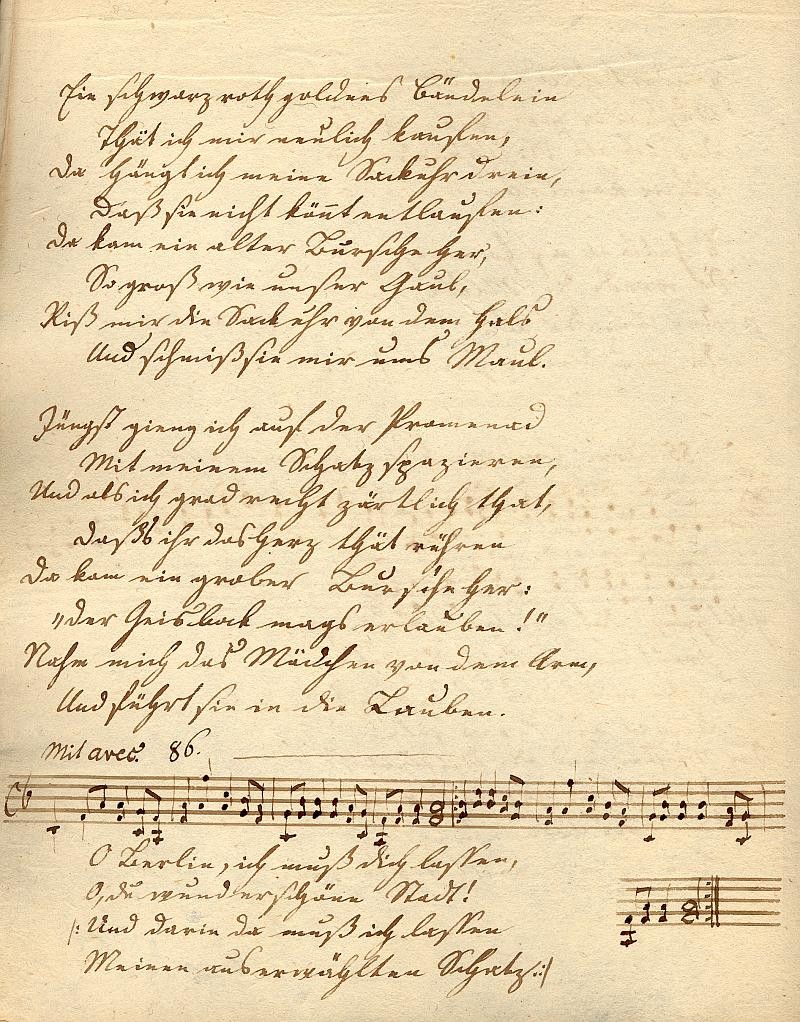 Ein schwarzrothgoldnes Bändelein
That ich mir neulich kaufen,
Da hängt ich meine Sackuhr drein,
Daß sie nicht könnt entlaufen:
Da kam ein alter Bursche her,
So groß wie unser Gaul,
Riß mir die Sackuhr von dem Hals
Und schmiß sie mir ums Maul.
Jüngst gieng ich auf der Promenad
Mit meinem Schatz spazieren,
Und als ich grad recht zärtlich that,
Daß's ihr das Herz thät rühren
Da kam ein grober Bursche her:
„Der Geisbock mags erlauben!"
Nahm mich das Mädchen von dem Arm,
Und führt sie in die Lauben.
Mit avec. 86.
O Berlin, ich muß dich lassen,
O, du wunderschöne Stadt!
/: Und darin da muß ich lassen
Meinen auserwählten Schatz :/